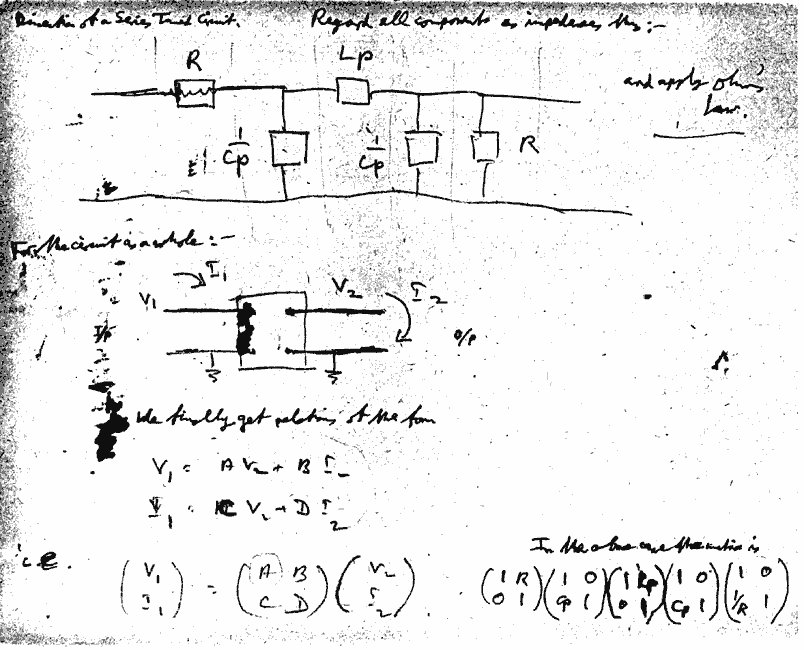 of a Series Circuit. Regard all components as impedances thus:-
R Lp
and apply ohm's
Law.
1/Cp 1/Cp R
For the circuit as a whole:-
I1
V1 V2 I2
I/P O/P
We finally get relations of the form
V1 = A V2 + B I2
I1 = C V2 + D I2
i.e.
In the above case the matrix is
(V1 I1) = (A B C D) (V2 I2) (1 R 0 1) (1 0 Cp 1) (1 Lp 0 1) (1 0 Cp 1) (1 0 1/R 1)